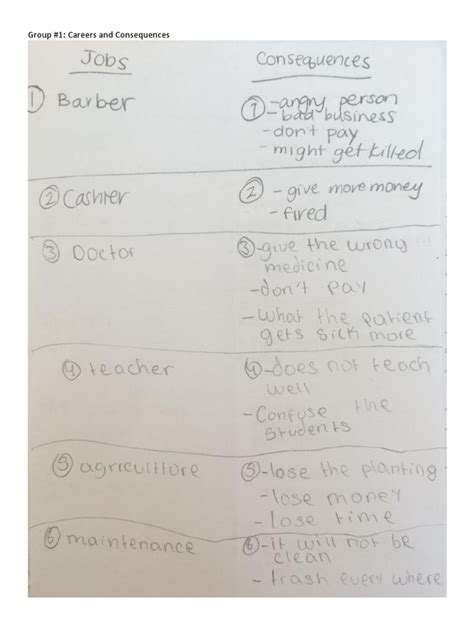 Group #1: Careers and Consequences
Jobs
Consequences
① Barber
① -angry person
- bad business
- don't pay
- might get killed
② Cashier
② - give more money
- fired
③ Doctor
③ -give the wrong
medicine
-don't pay
-what the patient
gets sick more
④ teacher
④ -does not teach
well
-Confuse the
Students
⑤ agricultlore
⑤ -lose the planting
-lose money
- lose time
⑥ maintenance
⑥ -it will not be
clean
- trash every where